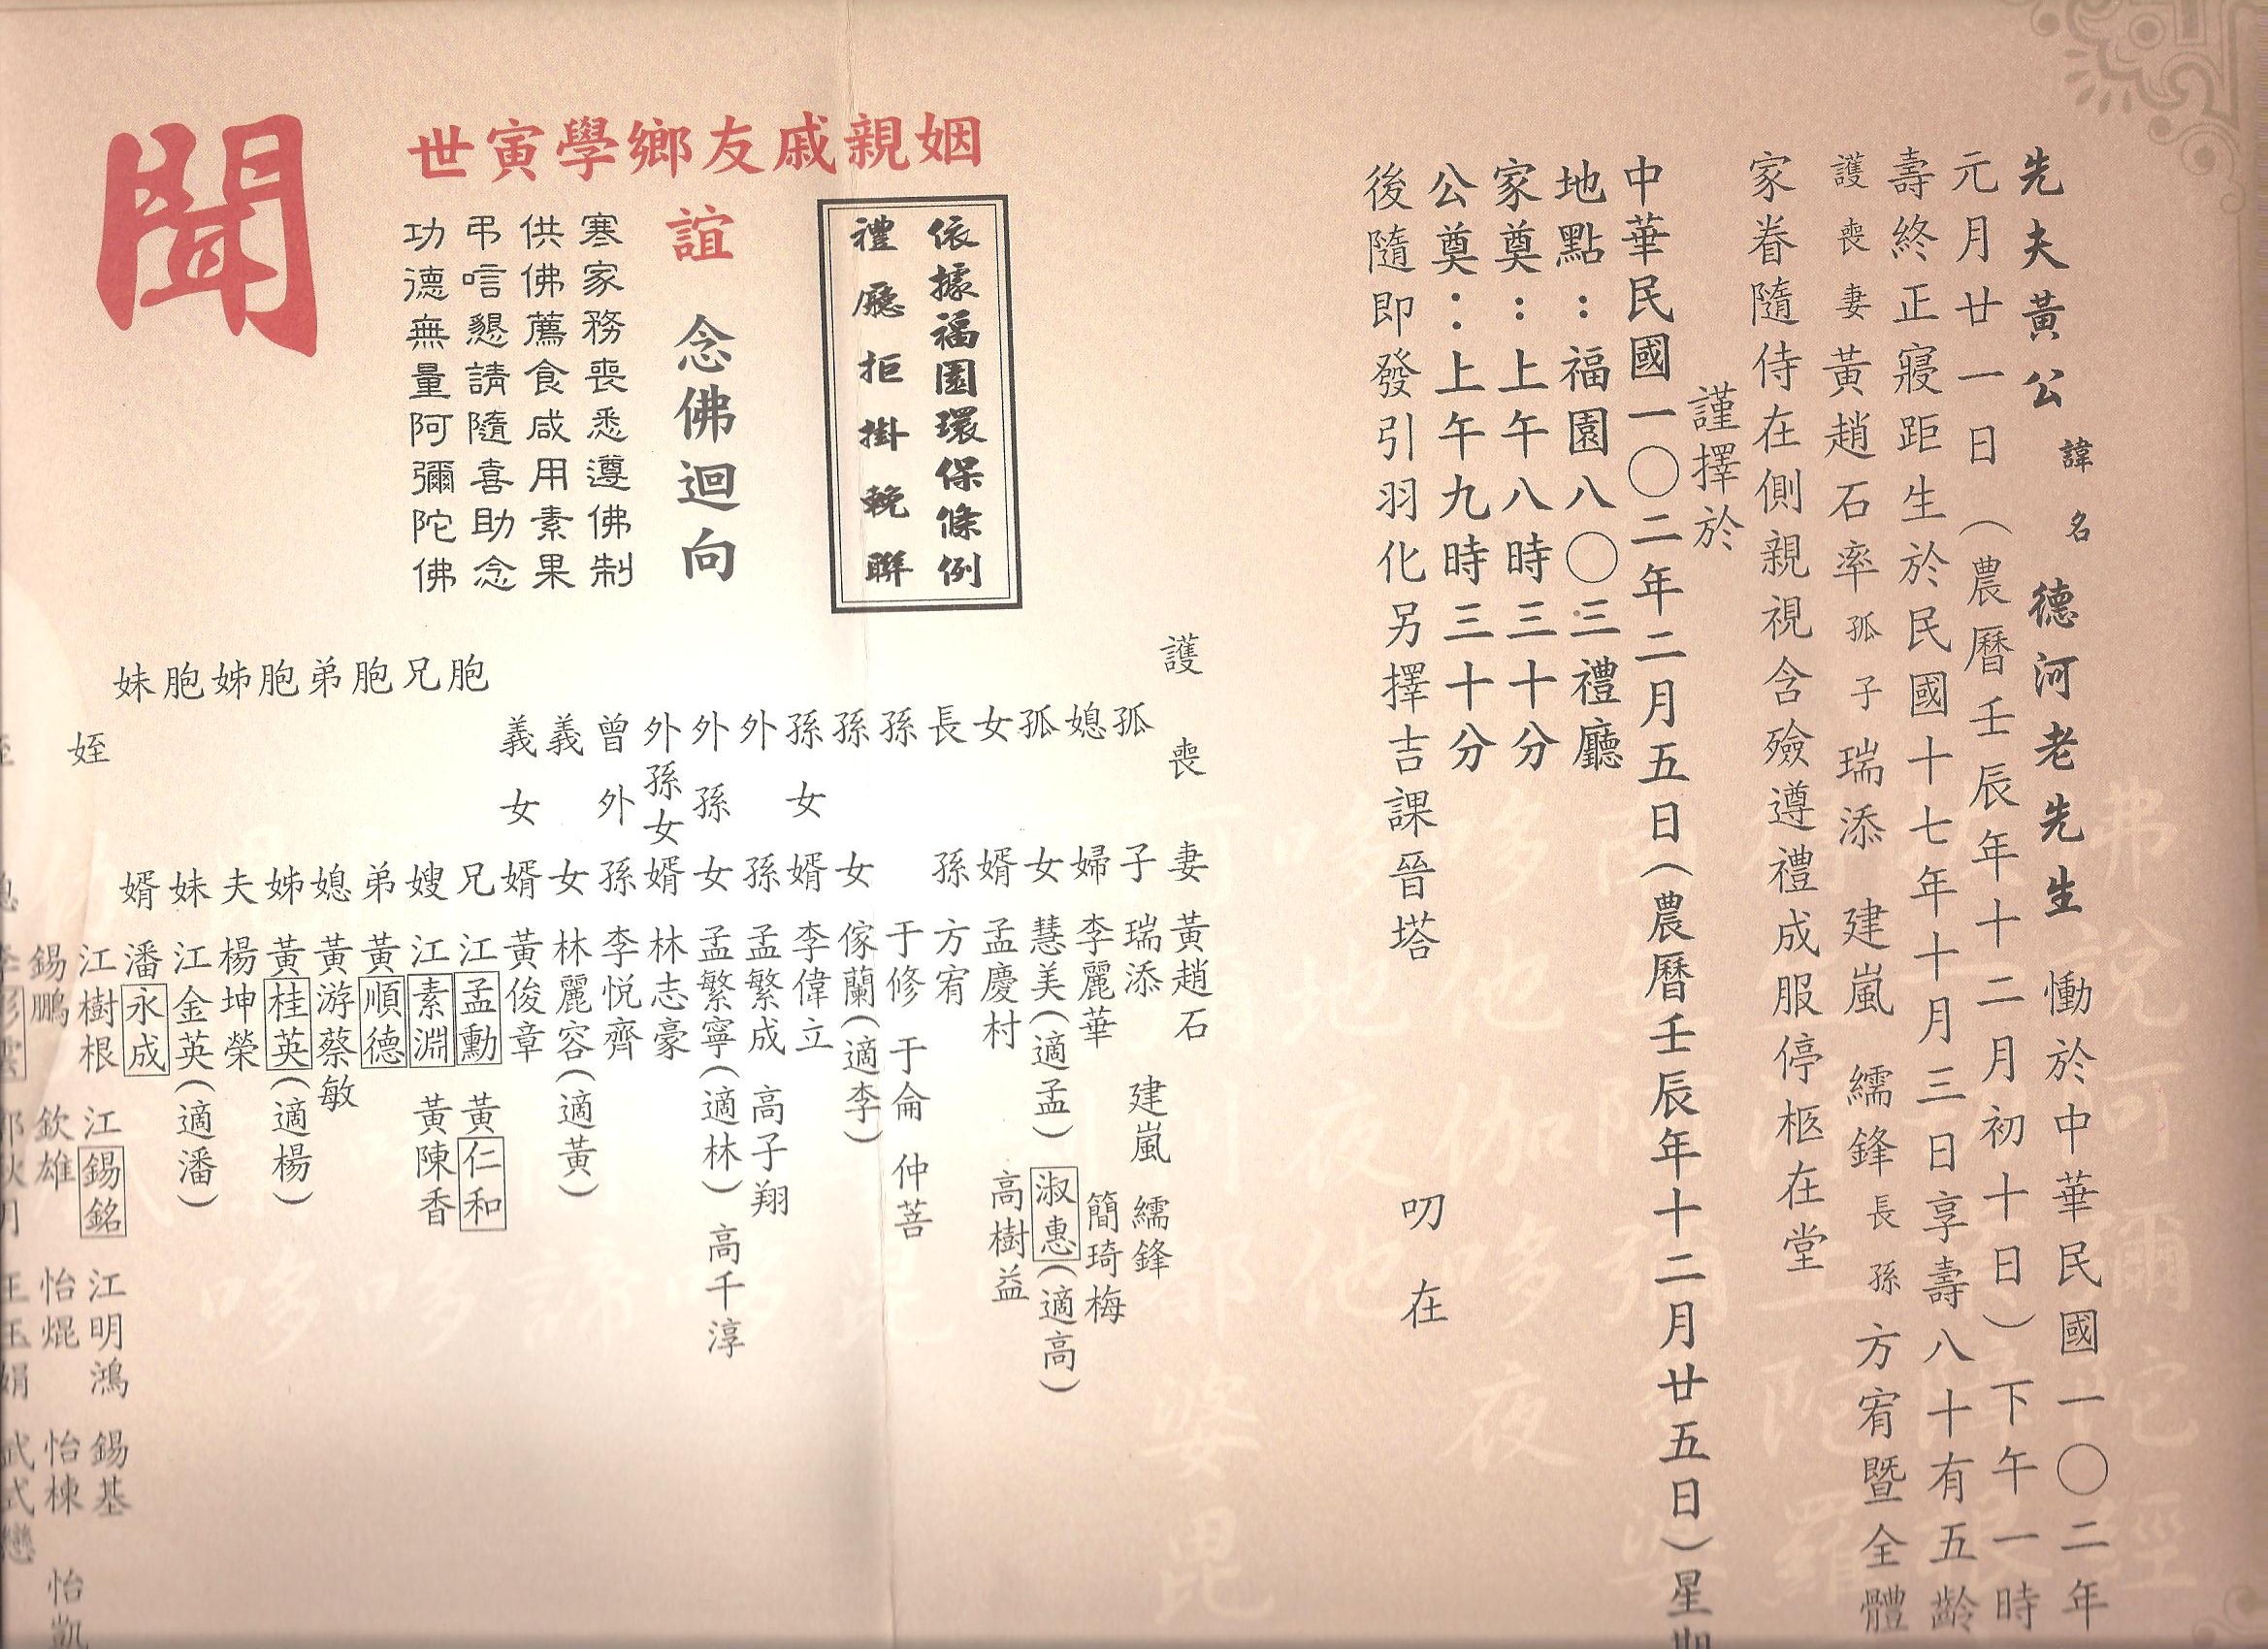 先夫黃公諱名德河老先生慟於中華民國一〇二年
元月廿一日（農曆壬辰年十二月初十日）下午一時
壽終正寢距生於民國十七年十月三日享壽八十有五齡
護喪妻黃趙石率孤子瑞添 建嵐 繻鋒長孫方宥暨全體
家眷隨侍在側親視含殮遵禮成服停柩在堂
謹擇於
中華民國一〇二年二月五日（農曆壬辰年十二月廿五日）星期
地點：福園八〇三禮廳
家奠：上午八時三十分
公奠：上午九時三十分
後隨即發引羽化另擇吉課晉塔 叨在
依據福園環保條例
禮廳拒掛輓聯
姻親戚友鄉學寅世
誼 念佛迴向
寒家務喪悉遵佛制
供佛薦食咸用素果
弔唁懇請隨喜助念
功德無量阿彌陀佛
聞
護喪妻 黃趙石
孤子 瑞添 建嵐 繻鋒
媳婦 李麗華 簡琦梅
孤女 慧美（適孟） 淑惠（適高）
女婿 孟慶村 高樹益
長孫 方宥
孫 于修 于侖 仲菩
孫女 傢蘭（適李）
孫女婿 李偉立
外孫 孟繁成 高子翔
外孫女 孟繁寧（適林） 高千淳
外孫女婿 林志豪
曾外孫 李悅齊
義女 林麗容（適黃）
義女婿 黃俊章
胞兄 江孟勳 黃仁和
胞兄嫂 江素淵 黃陳香
胞弟 黃順德
胞弟媳 黃游蔡敏
胞姊 黃桂英（適楊）
胞姊夫 楊坤榮
胞妹 江金英（適潘）
胞妹婿 潘永成
姪 江樹根 江錫銘 江明鴻 錫基
錫鵬 欽雄 怡焜 怡棟 怡凱